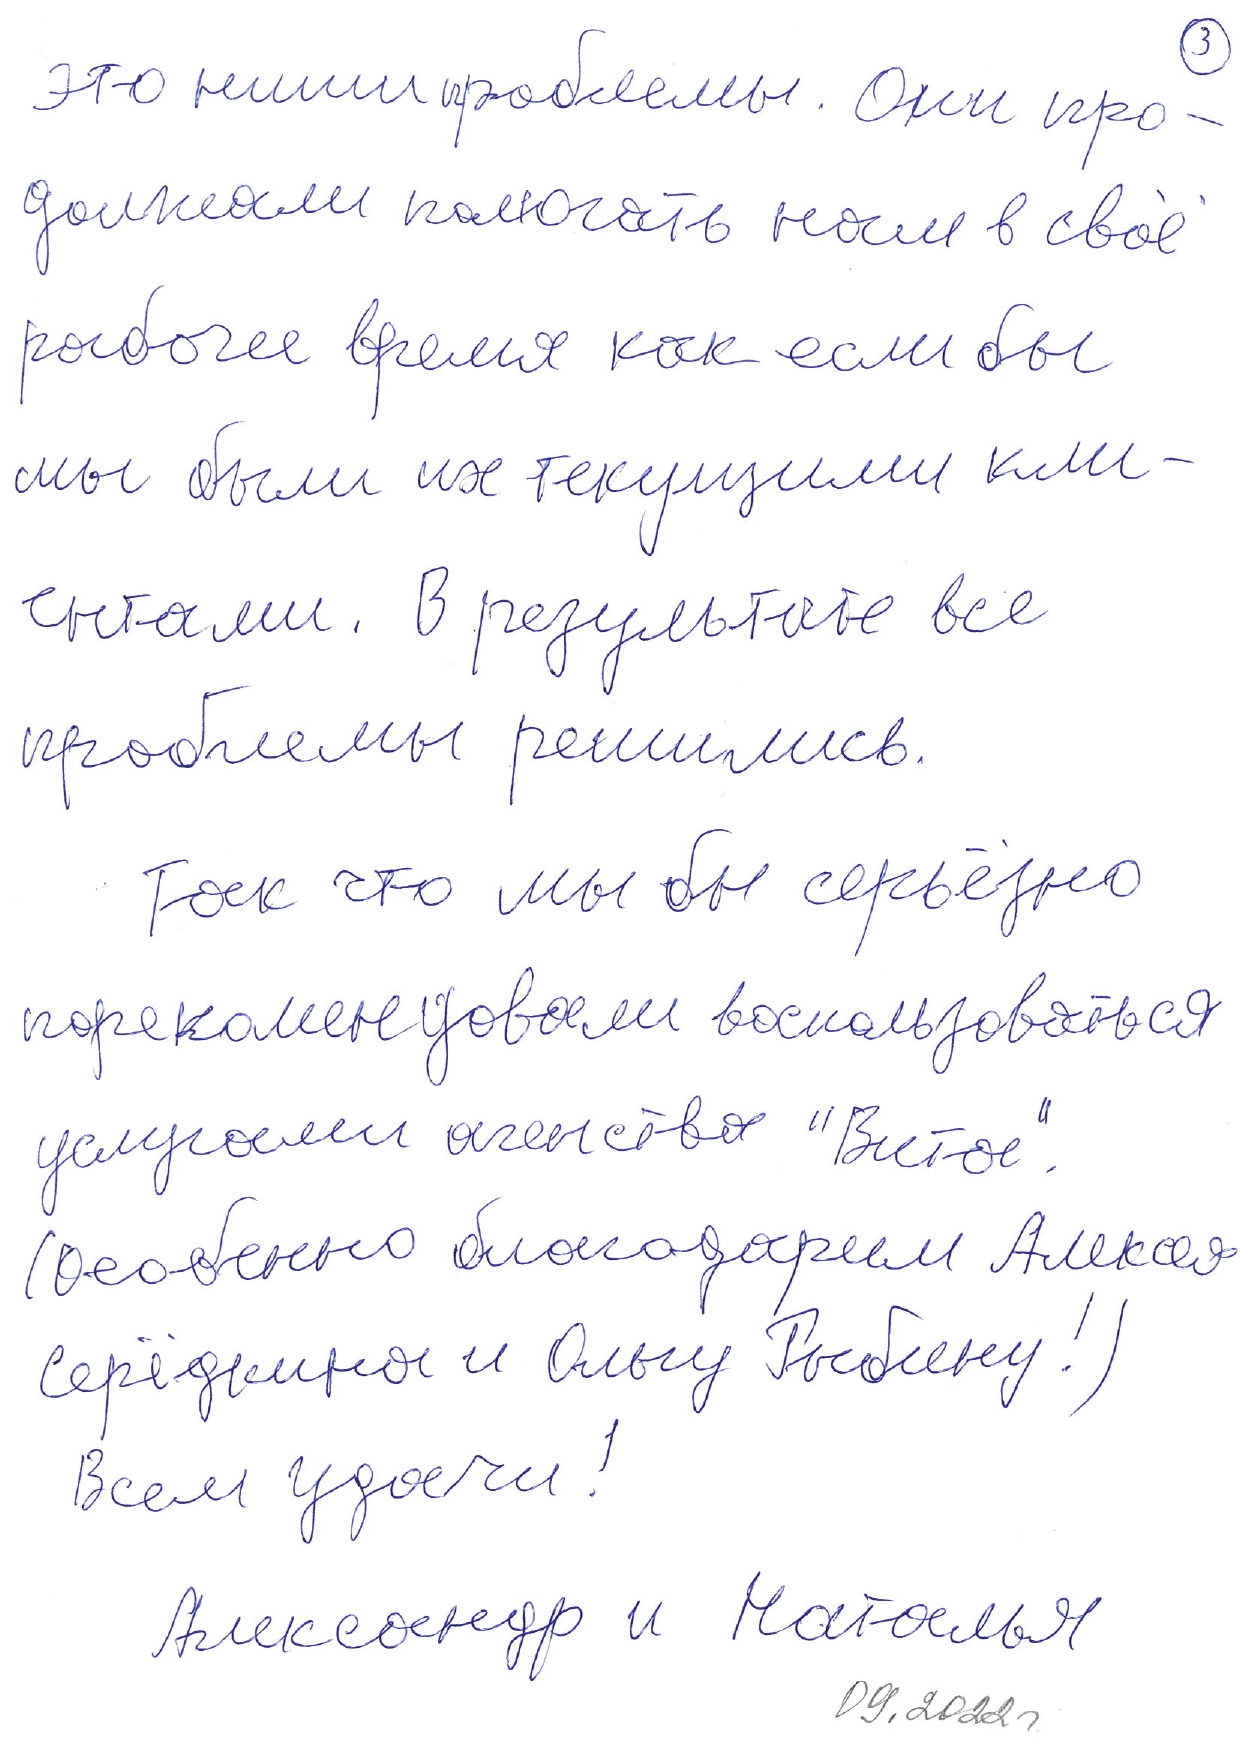 3
это наши проблемы. Они про-
должали помогать нам в своё
рабочее время как если бы
мы были их текущими кли-
ентами. В результате все
проблемы решились.
Так что мы бы серьёзно
порекомендовали воспользоваться
услугами агенства "Вита".
(Особенно благодарим Алексея
Серёдкина и Ольгу Рыбину!)
Всем удачи!
Александр и Наталья
09.2022г